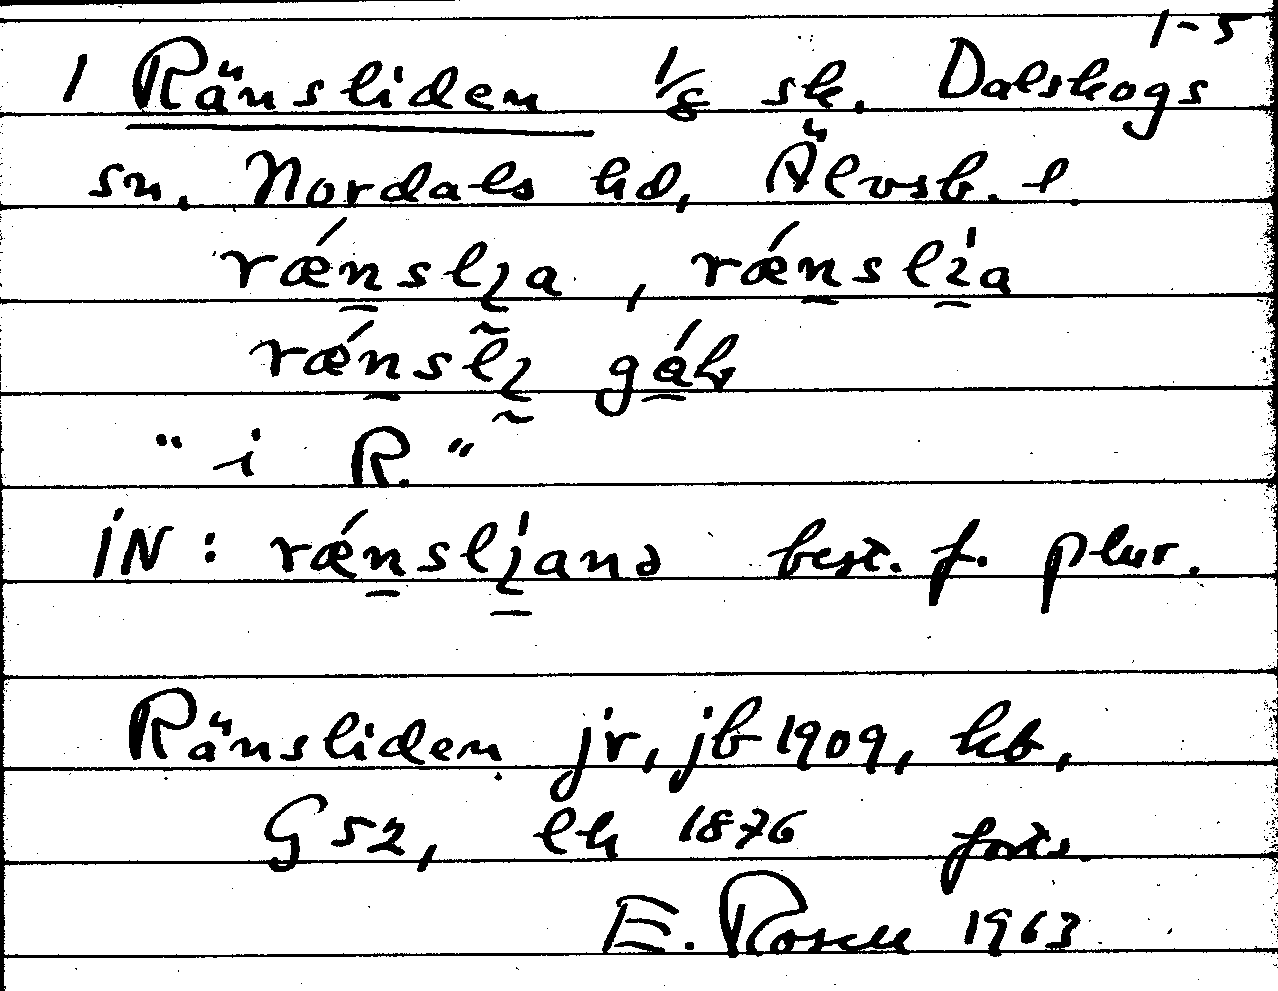 1-5
1 Ränsliden 1/8 sk. Dalskogs
sn. Nordals hd, Älvsb. l.
rǽnslɩa, rǽnslɩa
rǽnslɩ gáb
"i R."
IN: rǽnslɩanə best. f. plur.
Ränsliden jr, jb 1909, kb,
G 52, ek 1876 forts.
E. Rosell 1963